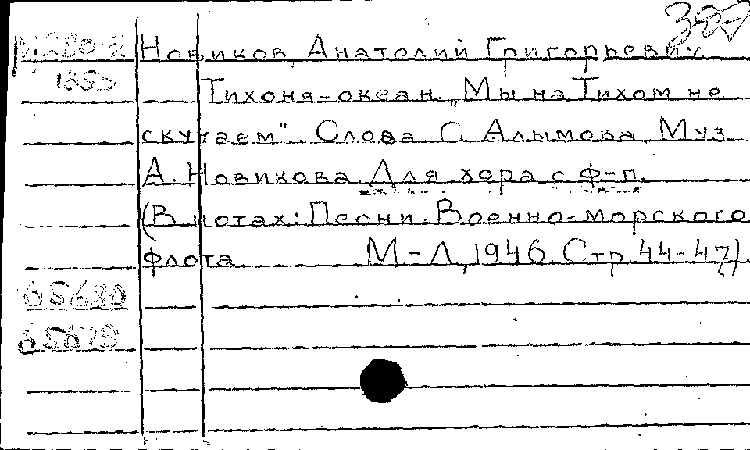 387
Новиков, Анатолий Григорьевич
Тихоня-океан. „Мы на Тихом не
скучаем". Слова С. Алымова. Муз.
А. Новикова. Для хора с ф-п.
(В нотах: Песни Военно-морского
флота М-Л, 1946 Стр. 44-47)
65630
65679